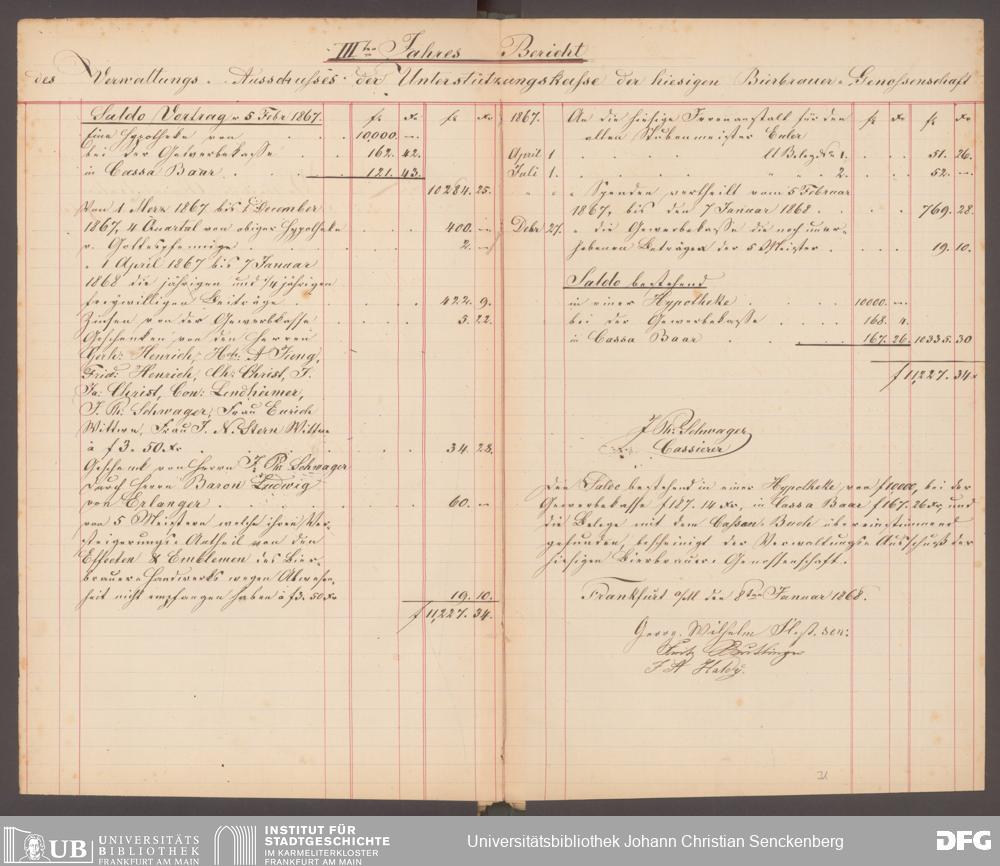 IIIter Jahres Bericht
des Verwaltungs-Ausschusses der Unterstützungskasse der hiesigen Bierbrauer-Genossenschaft
Saldo Vortrag v 5 Febr 1867. fr. Xr. fr. Xr.
Eine Hypotheke von 10,000. —
bei der Gewerbekasse 162. 42.
in Cassa Baar 121. 43.
10284. 25.
Von 1 Merz 1867 bis 1 December
1867, 4 Quartal von obiger Hypotheke 400. —
v. Gottespfennige 2. —
" 1 April 1867 bis 7 Januar
1868 die jährigen und 1/4 jährigen
freywilligen Beiträge 424. 9.
Zinsen von der Gewerbkasse 3. 22.
Geschenken von den Herren
Gerh: Henrich, A Jung,
Frid: Henrich, Ch: Christ, J.
Ja: Christ, Con: Lindheimer,
J. Ph: Schwager, Frau Enrich
Wittwe, Frau J. N. Stern Wittwe
à f 3. 50 Xr. 34. 28.
Geschenk von Herrn J. Ph Schwager
durch Herrn Baron Ludwig
von Erlanger 60. —
von 5 Meistern welche ihren Ver-
steigerungs-Antheil von den
Effecten & Emblemen des Bier-
brauer-Handwerks wegen Abwesen-
heit nicht empfangen haben à f 3. 50 Xr 19. 10.
f 11,227. 34.
1867. An die hiesige Irrenanstalt für den fr. Xr. fr. Xr.
alten Stubenmeister Euler
April 1 lt Beleg No 1. 51. 26.
Juli 1. " " 2. 52. —
" " Spenden vertheilt vom 5 Februar
1867, bis den 7 Januar 1868 769. 28.
Debr 27. " die Gewerbekasse die noch uner-
hobenen Beträge der 5 Meister 19. 10.
Saldo bestehend
in einer Hypotheke 10000. —
bei der Gewerbekasse 168. 4.
in Cassa Baar 167. 26. 10335. 30
f 11,227. 34.
J Ph: Schwager
Cassierer
Den Saldo bestehend in einer Hypotheke von f 10000, bei der
Gewerbekasse f 187. 14 Xr, in Cassa Baar f 167. 26 Xr, und
die Belege mit dem Cassen-Buch übereinstimmend
gefunden, bescheinigt der Verwaltungs-Ausschuß der
hiesigen Bierbrauer-Genossenschaft.
Frankfurt a/M den 8ten Januar 1868.
Georg Wilhelm sen:
Fritz
J A
UB UNIVERSITÄTS
BIBLIOTHEK
FRANKFURT AM MAIN
INSTITUT FÜR
STADTGESCHICHTE
IM KARMELITERKLOSTER
FRANKFURT AM MAIN
Universitätsbibliothek Johann Christian Senckenberg
DFG